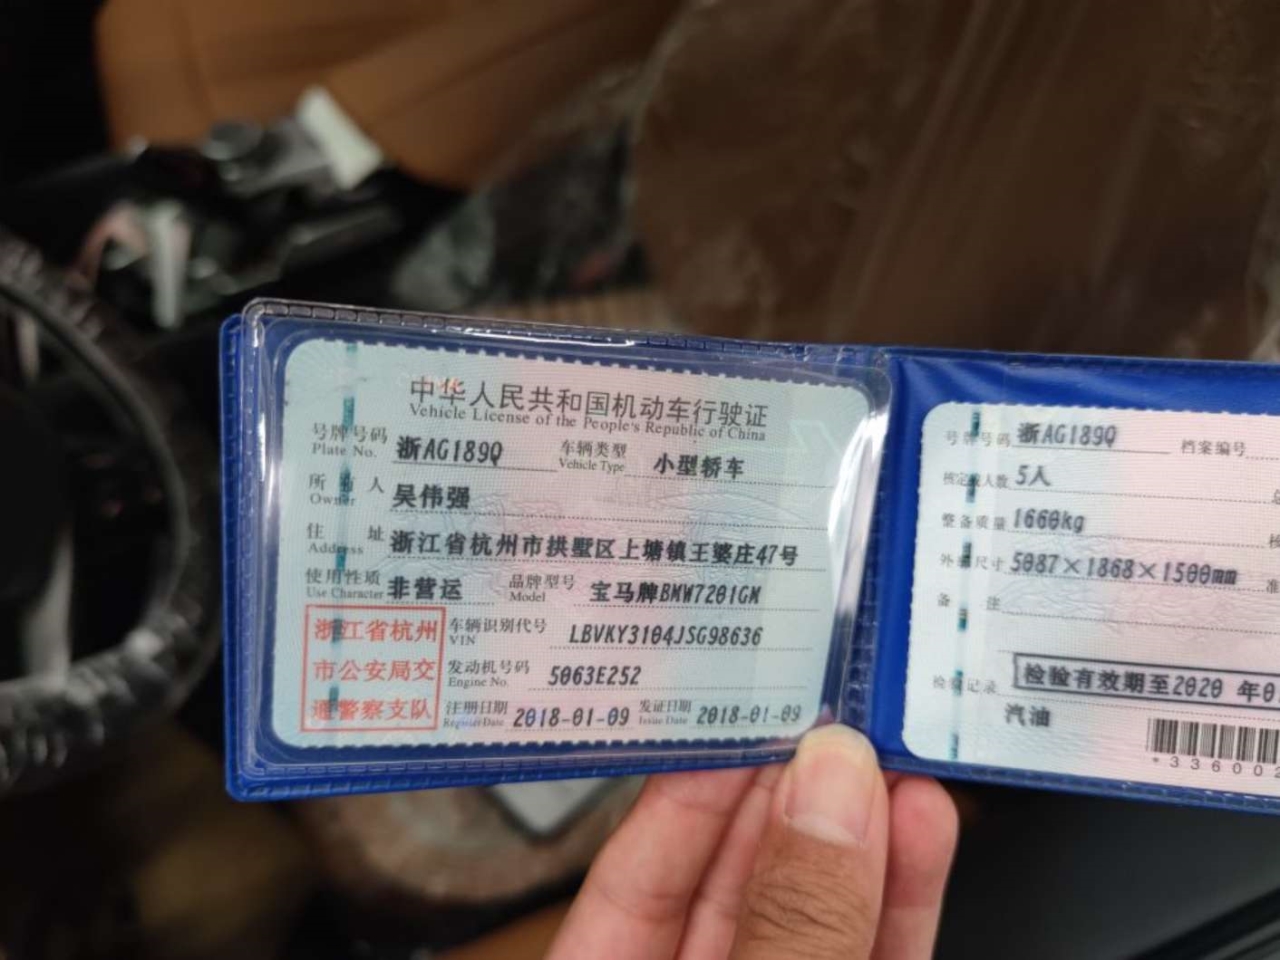 中华人民共和国机动车行驶证
Vehicle License of the People's Republic of China
号牌号码 浙AG189Q 车辆类型 小型轿车
Plate No. Vehicle Type
所有人 吴伟强
Owner
住址 浙江省杭州市拱墅区上塘镇王婆庄47号
Address
使用性质 非营运 品牌型号 宝马牌BMW7201GM
Use Character Model
浙江省杭州
市公安局交
通警察支队
车辆识别代号 LBVKY3104JSG98636
VIN
发动机号码 5063E252
Engine No.
注册日期 2018-01-09 发证日期 2018-01-09
Register Date Issue Date
号牌号码 浙AG189Q 档案编号
核定载人数 5人
整备质量 1660kg
外廓尺寸 5087×1868×1500mm 准
备注
检验记录 检验有效期至2020 年0
汽油
*336002